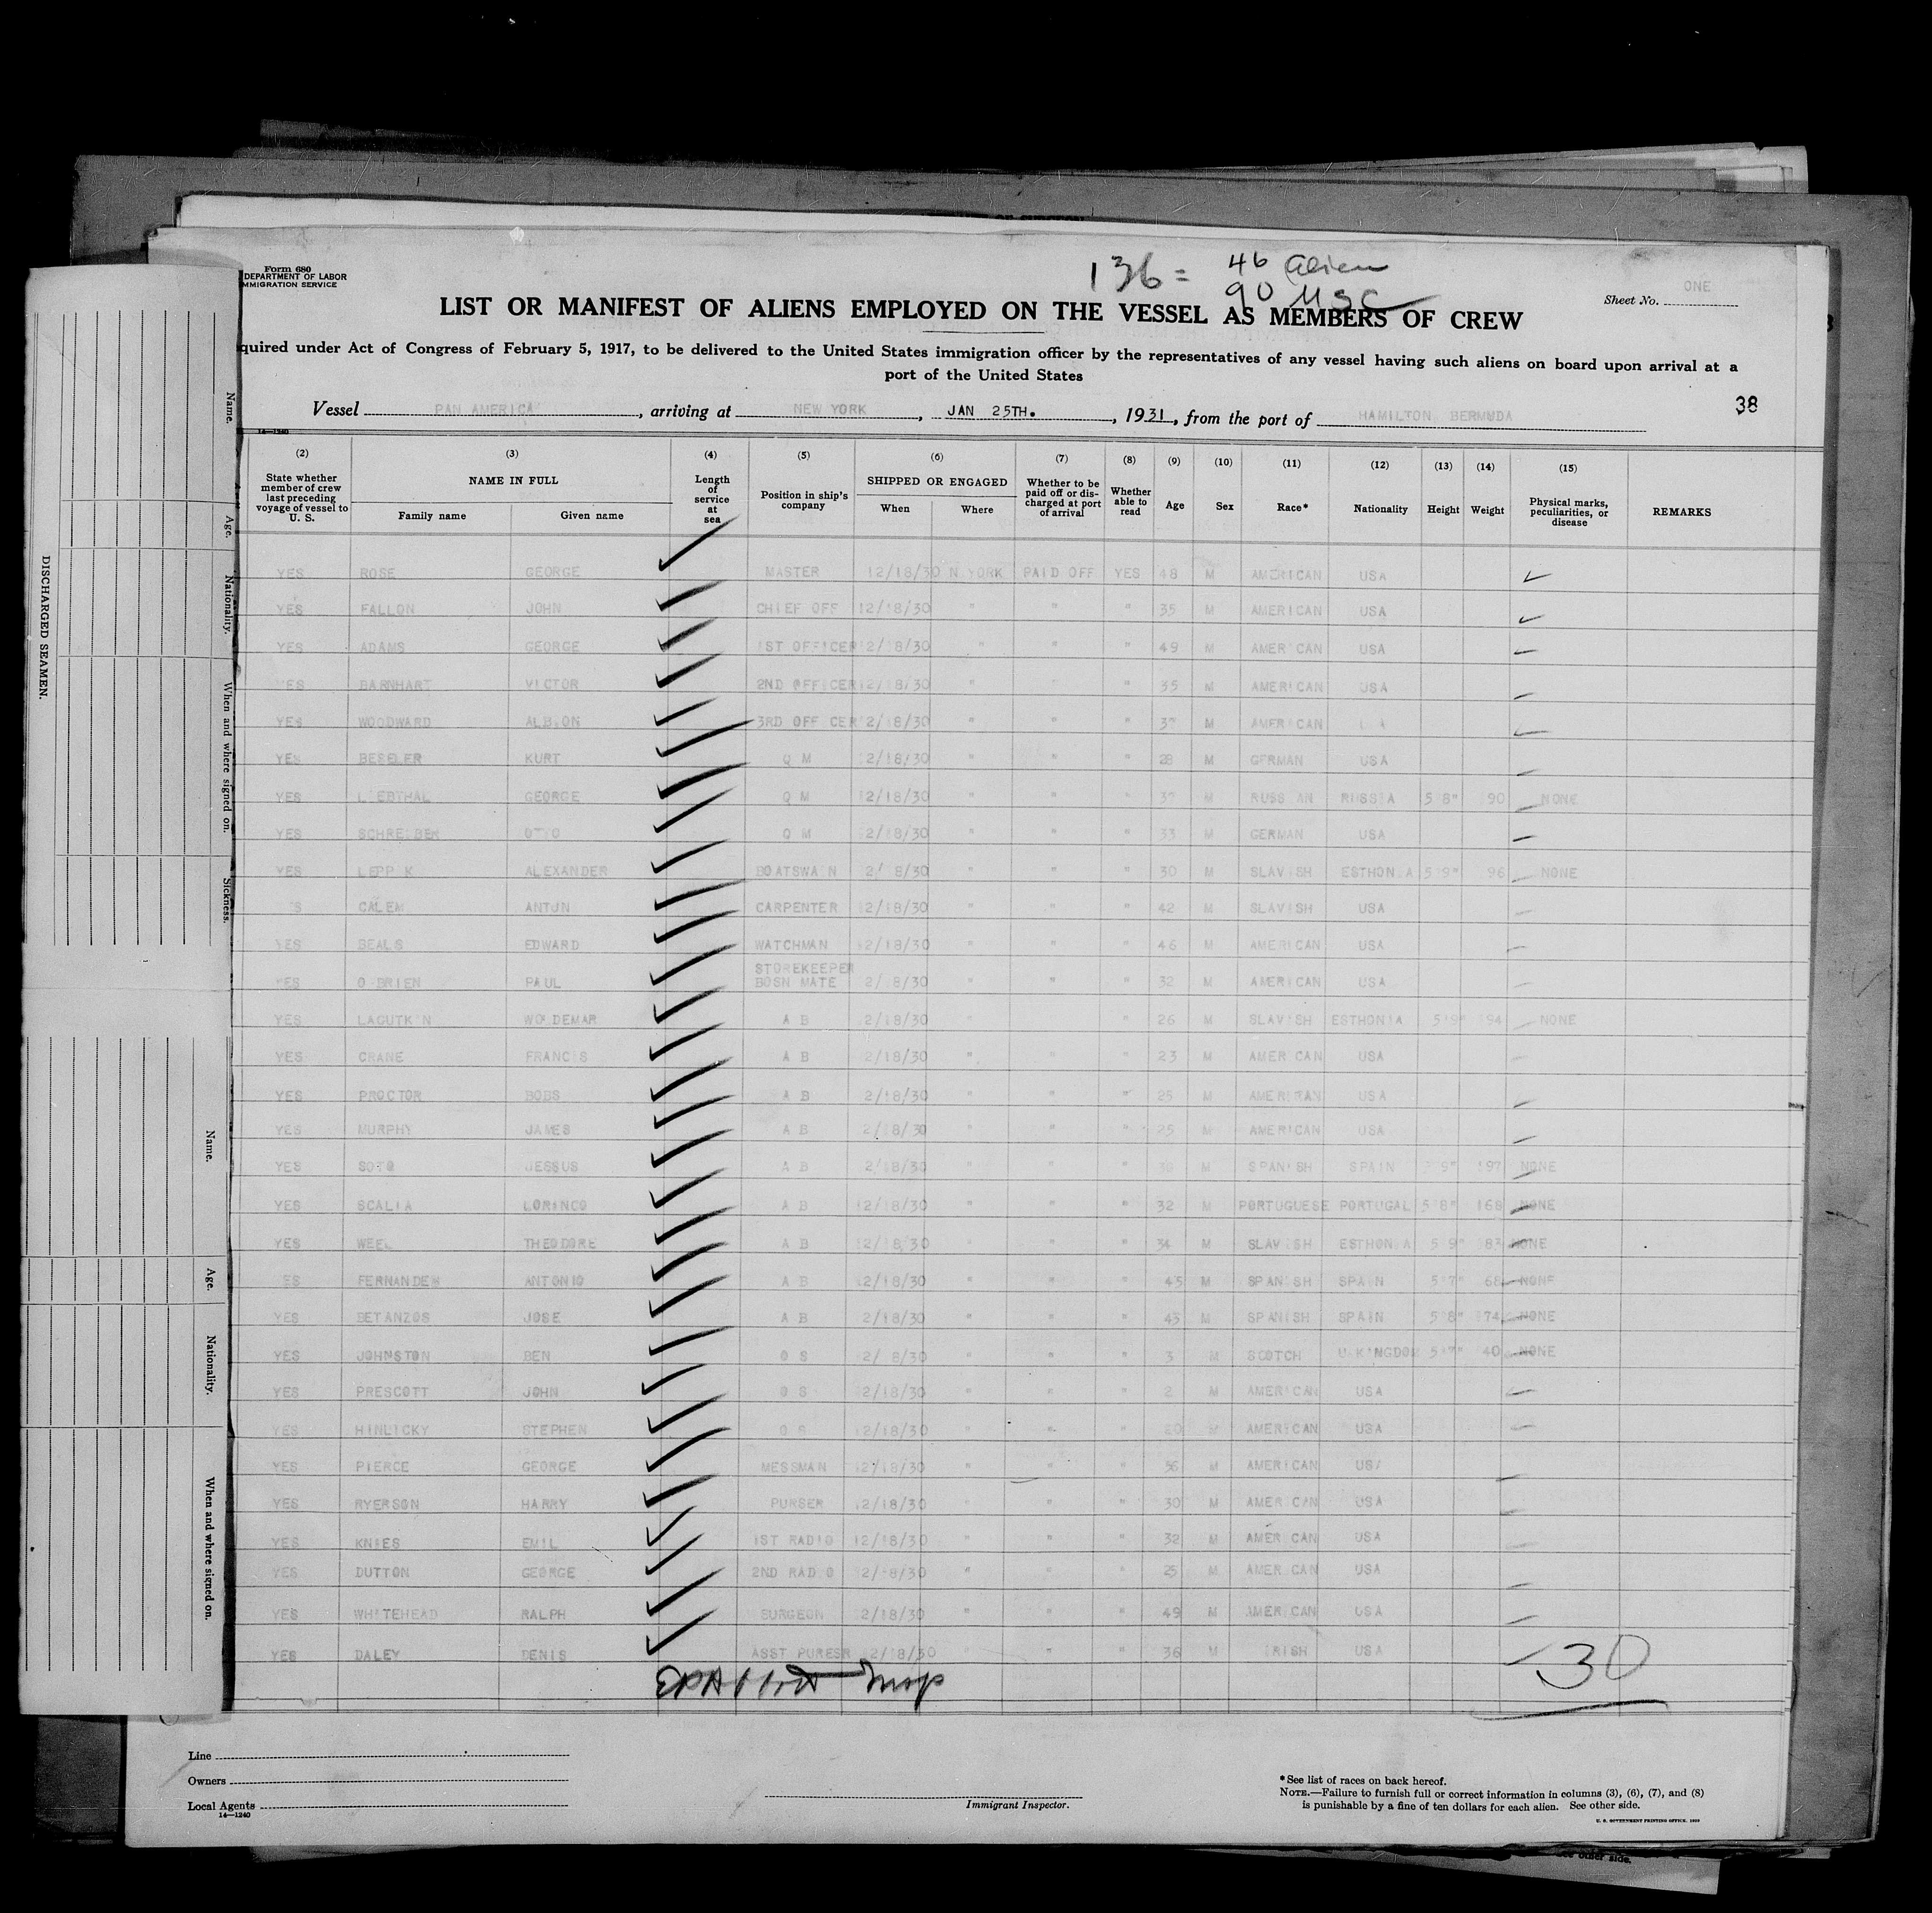 Form 680
DEPARTMENT OF LABOR
MMIGRATION SERVICE
136 = 46 alien
90 USC
Sheet No. ONE
LIST OR MANIFEST OF ALIENS EMPLOYED ON THE VESSEL AS MEMBERS OF CREW
quired under Act of Congress of February 5, 1917, to be delivered to the United States immigration officer by the representatives of any vessel having such aliens on board upon arrival at a
port of the United States
Vessel PAN AMERICA, arriving at NEW YORK, JAN 25TH., 1931, from the port of HAMILTON, BERMUDA
38
14—1240
(2) (3) (4) (5) (6) (7) (8) (9) (10) (11) (12) (13) (14) (15)
State whether member of crew last preceding voyage of vessel to U. S.
NAME IN FULL
Family name Given name
Length of service at sea
Position in ship's company
SHIPPED OR ENGAGED
When Where
Whether to be paid off or discharged at port of arrival
Whether able to read
Age Sex Race* Nationality Height Weight
Physical marks, peculiarities, or disease
REMARKS
YES ROSE GEORGE MASTER 12/18/30 N.YORK PAID OFF YES 48 M AMERICAN USA
YES FALLON JOHN CHIEF OFF 12/18/30 " " " 35 M AMERICAN USA
YES ADAMS GEORGE 1ST OFFICER 12/18/30 " " " 49 M AMERICAN USA
YES BARNHART VICTOR 2ND OFFICER 12/18/30 " " " 35 M AMERICAN USA
YES WOODWARD ALBION 3RD OFFICER 12/18/30 " " " M AMERICAN
YES BESELER KURT Q M 12/18/30 " " " 28 M GERMAN USA
YES LIEBTHAL GEORGE Q M 12/18/30 " " " M RUSSIAN RUSSIA 5'8" 90 NONE
YES SCHREIBER OTTO Q M 12/18/30 " " " 33 M GERMAN USA
YES LEPPIK ALEXANDER BOATSWAIN 12/18/30 " " " 30 M SLAVISH ESTHONIA 5'9" 96 NONE
YES CALEM ANTON CARPENTER 12/18/30 " " " 42 M SLAVISH USA
YES BEALS EDWARD WATCHMAN 12/18/30 " " " 46 M AMERICAN USA
STOREKEEPER
YES O BRIEN PAUL BOSN MATE 12/18/30 " " " 32 M AMERICAN USA
YES LAGUTKIN WOLDEMAR A B 12/18/30 " " " 26 M SLAVISH ESTHONIA 5'9" 194 NONE
YES CRANE FRANCIS A B 12/18/30 " " " 23 M AMERICAN USA
YES PROCTOR BOBS A B 12/18/30 " " " 25 M AMERICAN USA
YES MURPHY JAMES A B 12/18/30 " " " 25 M AMERICAN USA
YES SOTO JESSUS A B 12/18/30 " " " M SPANISH SPAIN 197 NONE
YES SCALIA LORINCO A B 12/18/30 " " " 32 M PORTUGUESE PORTUGAL 5'8" 168 NONE
YES WEEL THEODORE A B 12/18/30 " " " 34 M SLAVISH ESTHONIA 5'9" 183 NONE
YES FERNANDEN ANTONIO A B 12/18/30 " " " 45 M SPANISH SPAIN 5'7" 68 NONE
YES BETANZOS JOSE A B 12/18/30 " " " 43 M SPANISH SPAIN 5'8" 174 NONE
YES JOHNSTON BEN O S 12/18/30 " " " M SCOTCH U.KINGDOM 5'7" 40 NONE
YES PRESCOTT JOHN O S 12/18/30 " " " M AMERICAN USA
YES HINLICKY STEPHEN O S 12/18/30 " " " 20 M AMERICAN USA
YES PIERCE GEORGE MESSMAN 12/18/30 " " " 36 M AMERICAN USA
YES RYERSON HARRY PURSER 12/18/30 " " " 30 M AMERICAN USA
YES KNIES EMIL 1ST RADIO 12/18/30 " " " 32 M AMERICAN USA
YES DUTTON GEORGE 2ND RADIO 12/18/30 " " " 25 M AMERICAN USA
YES WHITEHEAD RALPH SURGEON 12/18/30 " " " 49 M AMERICAN USA
YES DALEY DENIS ASST PURESR 12/18/30 " " " 36 M IRISH USA
30
Line
Owners
Local Agents
14—1240
Immigrant Inspector.
*See list of races on back hereof.
NOTE.—Failure to furnish full or correct information in columns (3), (6), (7), and (8)
is punishable by a fine of ten dollars for each alien. See other side.
U. S. GOVERNMENT PRINTING OFFICE. 1930
See other side.
DISCHARGED SEAMEN.
Name.
Age.
Nationality.
When and where signed on.
Sickness.
Name.
Age.
Nationality.
When and where signed on.